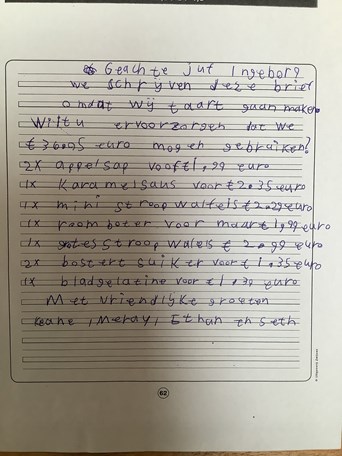 Geachte juf Ingeborg
we schrijven deze brief
omdat wij taart gaan maken
Wilt u ervoorzorgen dat we
€36.05 euro mogen gebruiken?
2x appelsap voor €1,99 euro
1x Karamelsaus voor €2.35 euro
1x mini stroop wafels €2.29 euro
1x room boter voor maar €1,99 euro
1x stroop wafels €2.99 euro
2x bastert suiker voor €1.35 euro
1x bladgelatine voor €1.39 euro
Met vriendlijke groeten
Keane, Meray, Ethan en Seth
62